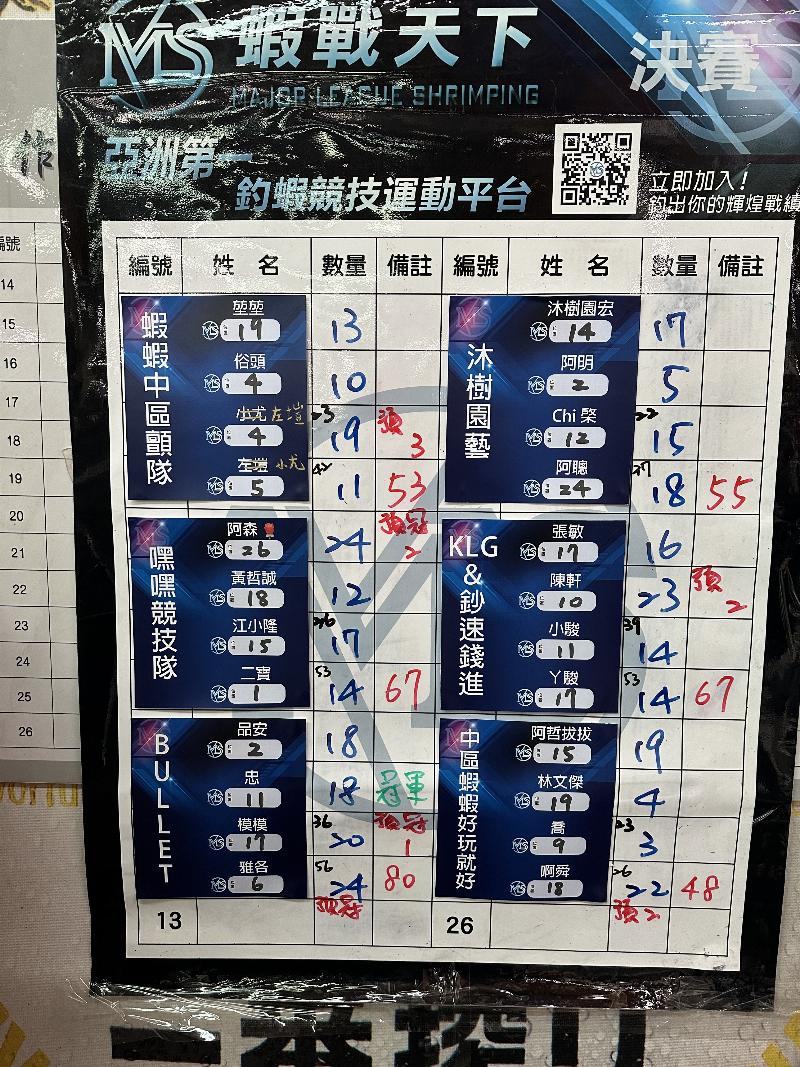 MLS 蝦戰天下 決賽
MAJOR LEAGUE SHRIMPING
亞洲第一
釣蝦競技運動平台
立即加入!
釣出你的輝煌戰績
編號 姓名 數量 備註 編號 姓名 數量 備註
蝦蝦中區顫隊
堃堃 19 13
俗頭 4 10
小尤 左塏 4 23 19 預3
左塏 小尤 5 42 11 53
沐樹園藝
沐樹園宏 14 17
阿明 2 5
Chi 棨 12 22 15
阿聰 24 37 18 55
嘿嘿競技隊
阿森 26 24 預冠2
黃哲誠 18 12
江小隆 15 36 17
二寶 1 53 14 67
KLG&鈔速錢進
張敏 17 16
陳軒 10 23 預2
小駿 11 39 14
丫駿 17 53 14 67
BULLET
品安 2 18
忠 11 18 冠軍
模模 17 36 20 預冠1
雅各 6 56 24 80
預冠
中區蝦蝦好玩就好
阿哲拔拔 15 19
林文傑 19 4
喬 9 23 3
啊舜 18 26 22 48
預2
13 26
編號
14
15
16
17
18
19
20
21
22
23
24
25
26